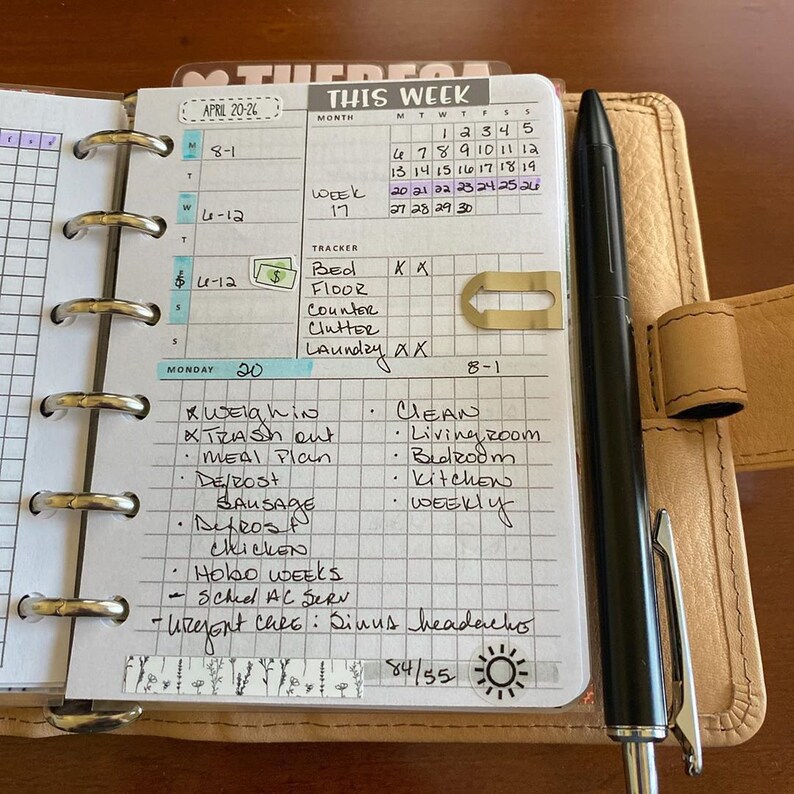 THERESA
THIS WEEK
APRIL 20-26
MONTH M T W T F S S
1 2 3 4 5
6 7 8 9 10 11 12
13 14 15 16 17 18 19
WEEK 20 21 22 23 24 25 26
17 27 28 29 30
M 8-1
T
W 6-12
T
F 6-12 $
S
S
TRACKER
Bed X X
Floor
Counter
Clutter
Laundry X X
MONDAY 20 8-1
x Weigh in
x Trash out
· Meal Plan
· Defrost
Sausage
· Defrost
Chicken
· Hobo Weeks
- Sched AC Serv
- Urgent Care: Sinus headache
· Clean
· Livingroom
· Bedroom
· Kitchen
· Weekly
84/55